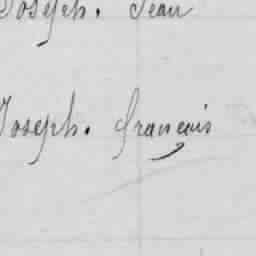 Joseph. Jean
Joseph. français